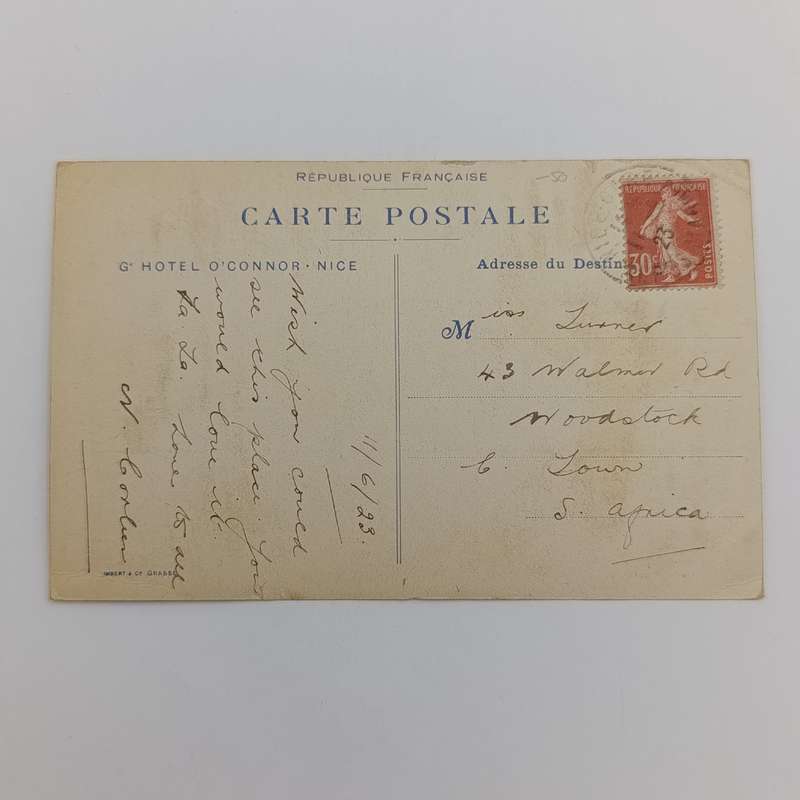 RÉPUBLIQUE FRANÇAISE
CARTE POSTALE
Gd HOTEL O'CONNOR · NICE
Adresse du Destin
RÉPUBLIQUE FRANÇAISE
30c
POSTES
23
11/6/23.
Wish you could
see this place. You
would love it.
La La. Love to all
N.
Miss Turner
43 Walmer Rd
Woodstock
C. Town
S. Africa
IMBERT & Cie GRASSE